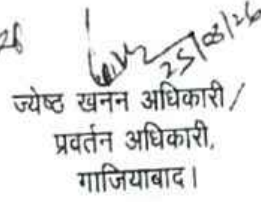 25/03/26
ज्येष्ठ खनन अधिकारी/
प्रवर्तन अधिकारी,
गाजियाबाद।